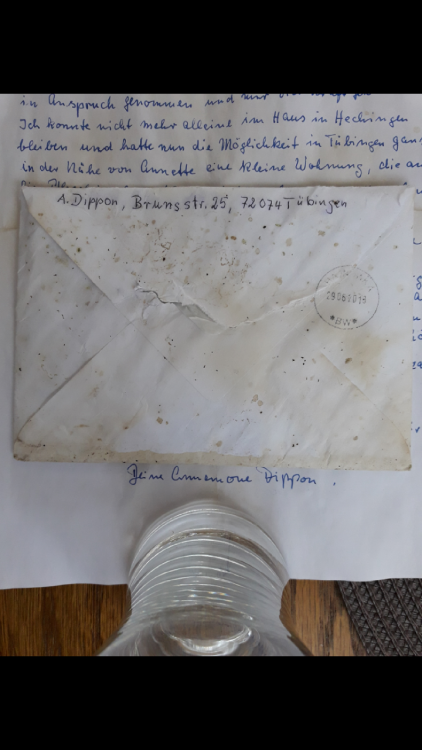 in Anspruch genommen und
Ich konnte nicht mehr alleine im Haus in Hechingen
bleiben und hatte nun die Möglichkeit in Tübingen ganz
in der Nähe von Annette eine kleine Wohnung, die
A. Dippon, Brunsstr. 25, 72074 Tübingen
*BW*
Deine Annemone Dippon.